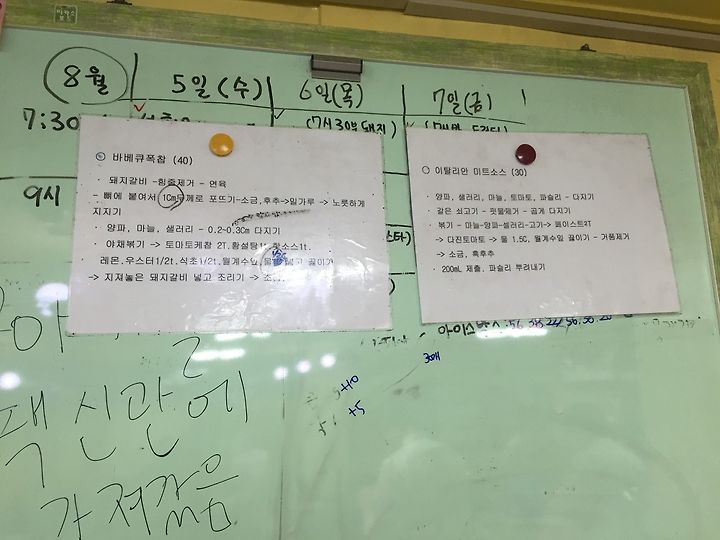 8월 5일(수) 6일(목) 7일(금)
7:30
(7시30분돼지
9시
바베큐폭찹 (40)
· 돼지갈비 -힘줄제거 - 연육
- 뼈에 붙여서 1Cm두께로 포뜨기-소금,후추->밀가루 -> 노릇하게
지지기
· 양파, 마늘, 샐러리 - 0.2-0.3Cm 다지기
· 야채볶기 -> 토마토케찹 2T.황설탕1t.핫소스1t.
레몬.우스터1/2t.식초1/2t.월계수잎.물 넣고 끓이기
-> 지져놓은 돼지갈비 넣고 조리기 ->
○ 이탈리안 미트소스 (30)
· 양파, 샐러리, 마늘, 토마토, 파슬리 - 다지기
· 갈은 쇠고기 - 핏물제거 - 곱게 다지기
· 볶기 - 마늘-양파-샐러리-고기-> 페이스트2T
-> 다진토마토 -> 물 1.5C, 월계수잎 끓이기 - 거품제거
-> 소금, 흑후추
· 200mL 제출, 파슬리 뿌려내기
스타)
30개
+10
+5
신관에
가져갔음